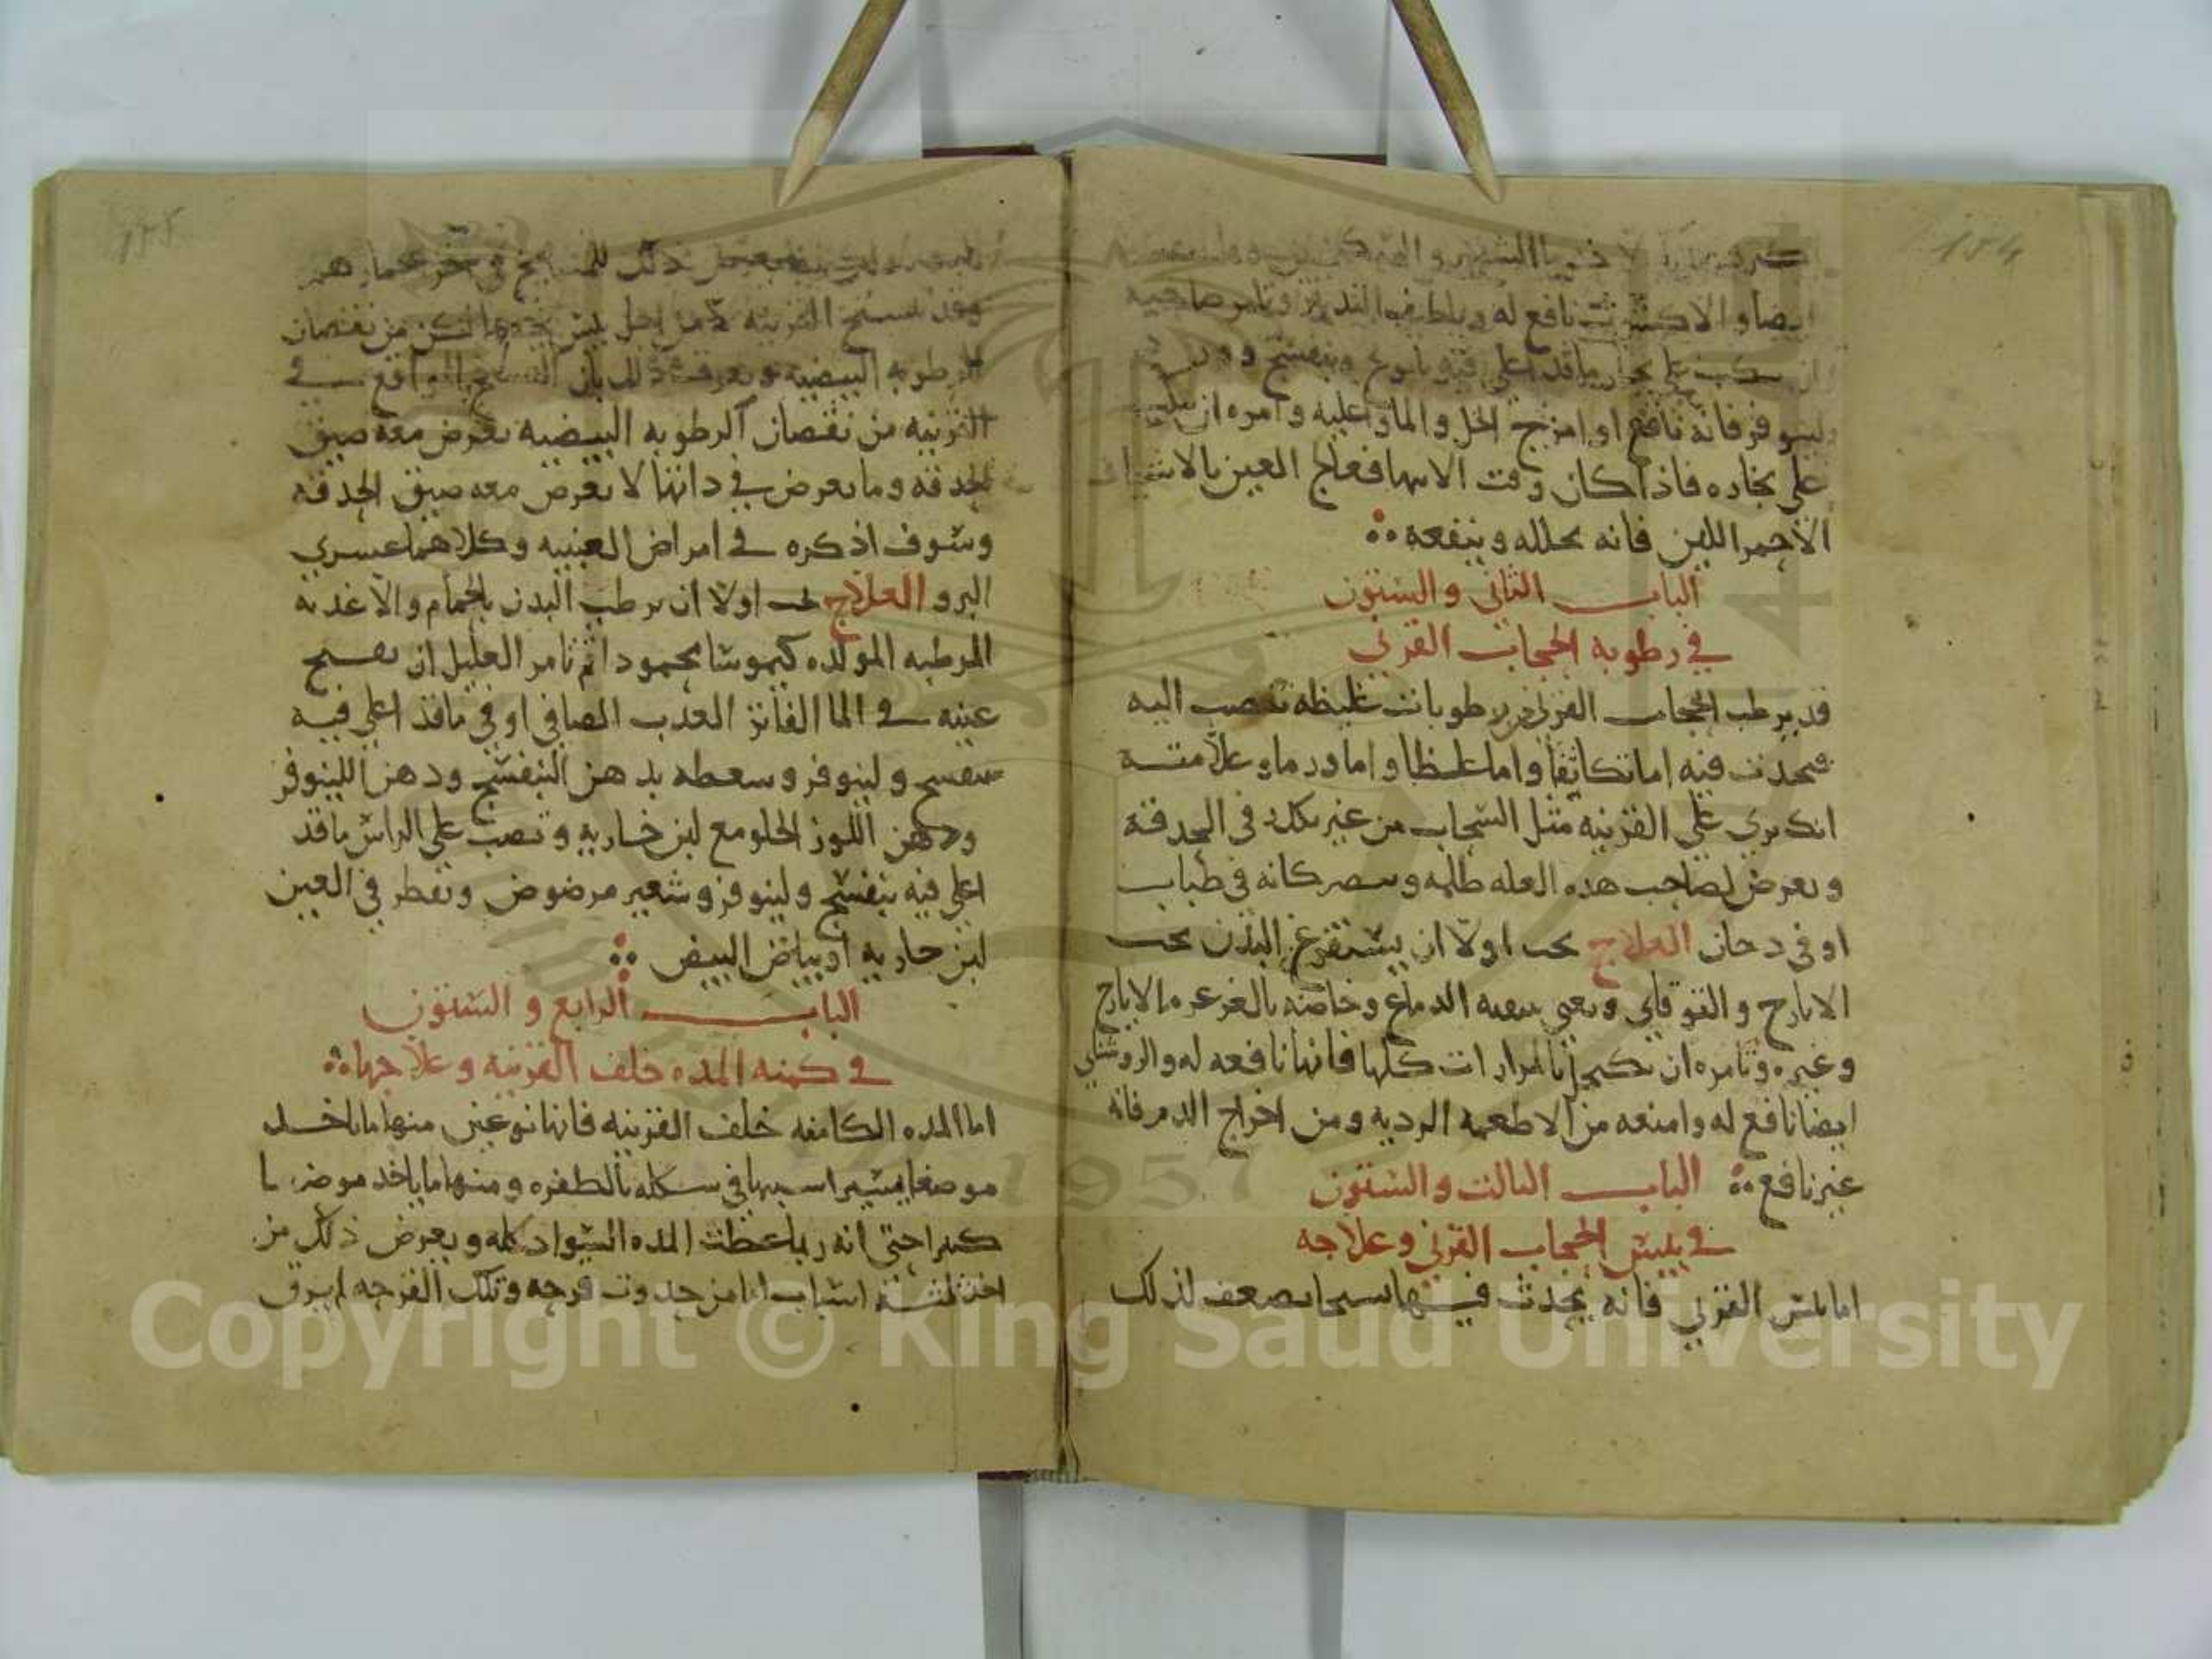 ايضا والاكتار نافع له ويلطف التدبير ويامر صاحبه
ان يكب علي بخار ما قد اغلي فيه بابونج وبنفسج وورد
ولينوفر فانه نافع او امزج الخل والما واغليه وامره ان يكب
علي بخاره فاذا كان وقت الانتها فعالج العين بالاشياف
الاحمر اللين فانه يحلله وينفعه
الباب الثاني والستون
في رطوبه الحجاب القرني
قد يرطب الحجاب القرني من رطوبات غليظه تنصب اليه
فيحدث فيه اما تكاثفا واما غلظا واما ورما وعلامته
انك تري علي القرنيه مثل السحاب من غير تكدر في الحدقة
ويعرض لصاحب هذه العله ظلمه ويبصر كانه في ضباب
او في دخان العلاج يجب اولا ان يستفرغ البدن بحب
الايارج والقوقاي ويعني بتنقيه الدماغ وخاصه بالغرغره بالايارج
وغيره وتامره ان يكتحل بالمرارات كلها فانها نافعه له والروشناي
ايضا نافع له وامنعه من الاطعمه الرديه ومن اخراج الدم فانه
غير نافع الباب الثالث والستون
في يبس الحجاب القرني وعلاجه
اما يبس القرني فانه يحدث فيها تشنجا يضعف لذلك
البصر وقد يعرض ذلك للمشايخ في اخر عمارهم
وقد تشنج القرنيه لا من اجل يبس يخصها لكن من نقصان
الرطوبه البيضيه ويعرف ذلك بان التشنج الواقع في
القرنيه من نقصان الرطوبه البيضيه يعرض معه ضيق
الحدقه وما يعرض في ذاتها لا يعرض معه ضيق الحدقه
وسوف اذكره في امراض العنبيه وكلاهما عسري
البرو العلاج يجب اولا ان يرطب البدن بالحمام والاغذيه
المرطبه المولده كيموسا محمودا ثم تامر العليل ان يفتح
عينيه في الما الفاتر العذب الصافي او في ما قد اغلي فيه
بنفسج ولينوفر وسعطه بدهن البنفسج ودهن اللينوفر
ودهن اللوز الحلو مع لبن جاريه وتصب علي الراس ما قد
اغلي فيه بنفسج ولينوفر وشعير مرضوض وتقطر في العين
لبن جاريه او بياض البيض
الباب الرابع والستون
في كمنه المده خلف القرنيه وعلاجها
اما المده الكامنه خلف القرنيه فانها نوعين منها ما ياخد
موضعا يسيرا شبيها في شكله بالظفره ومنها ما ياخد موضعا
كبيرا حتي انه ربما غطت المده السواد كله ويعرض ذلك من
احد ثلثه اسباب اما من حدوث قرحه وتلك القرحه لم يرق
134
Copyright © King Saud University
1957